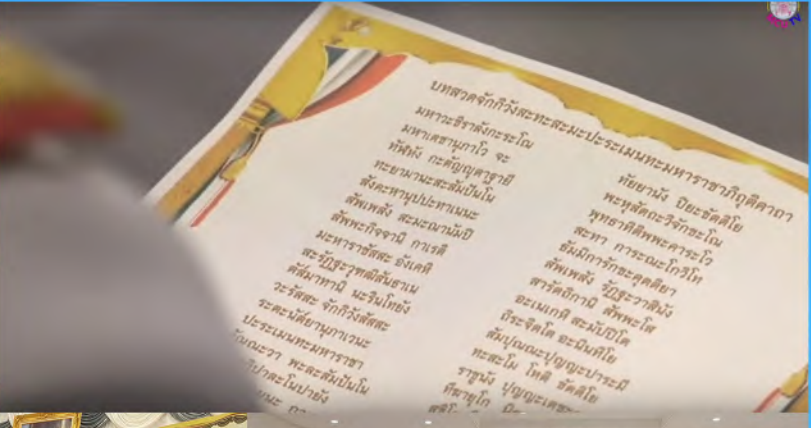 บทสวดจักกีวังสะทะสะมะปะระเมนทะมหาราชาภิถุติคาถา
มหาวะชิราลังกะระโณ
มหาเตชานุภาโว จะ
ทัฬหัง กะตัญญุตาฐายี
ทะยามานะสะสัมปันโน
สังคะหานุปปะทาเนนะ
สัพเพสัง สะมะณานัมปิ
สัพพะกิจจานิ กาเรติ
มะหาราชัสสะ ยังเตที
สะรัฏฐะวุฑฒิสันธาเน
ตัสมาทานิ นะรินโทยัง
วะรัสสะ จักกิวังสัสสะ
ระตะนัตยานุภาเวนะ
ปะระเมนทะมหาราชา
พะละสัมปันโน
ทัยยานัง ปิยะขัตติโย
พะหุสัตถะวิจักขะโณ
พุทธาทิติพพะคาระโว
สะทา การะณะโกวิโท
ธัมมิการักขะคุตติยา
สัพเพสัง รัฏฐะวาสินัง
สารัตถิกานิ สัพพะโส
อะเนเกหิ สะมัปปิโต
ถิระจิตโต อะนินทิโย
สัมปุณณะปุญญะปาระมี
ทะสะโม โหติ ขัตติโย
ราชูนัง
ทีฆายุโก